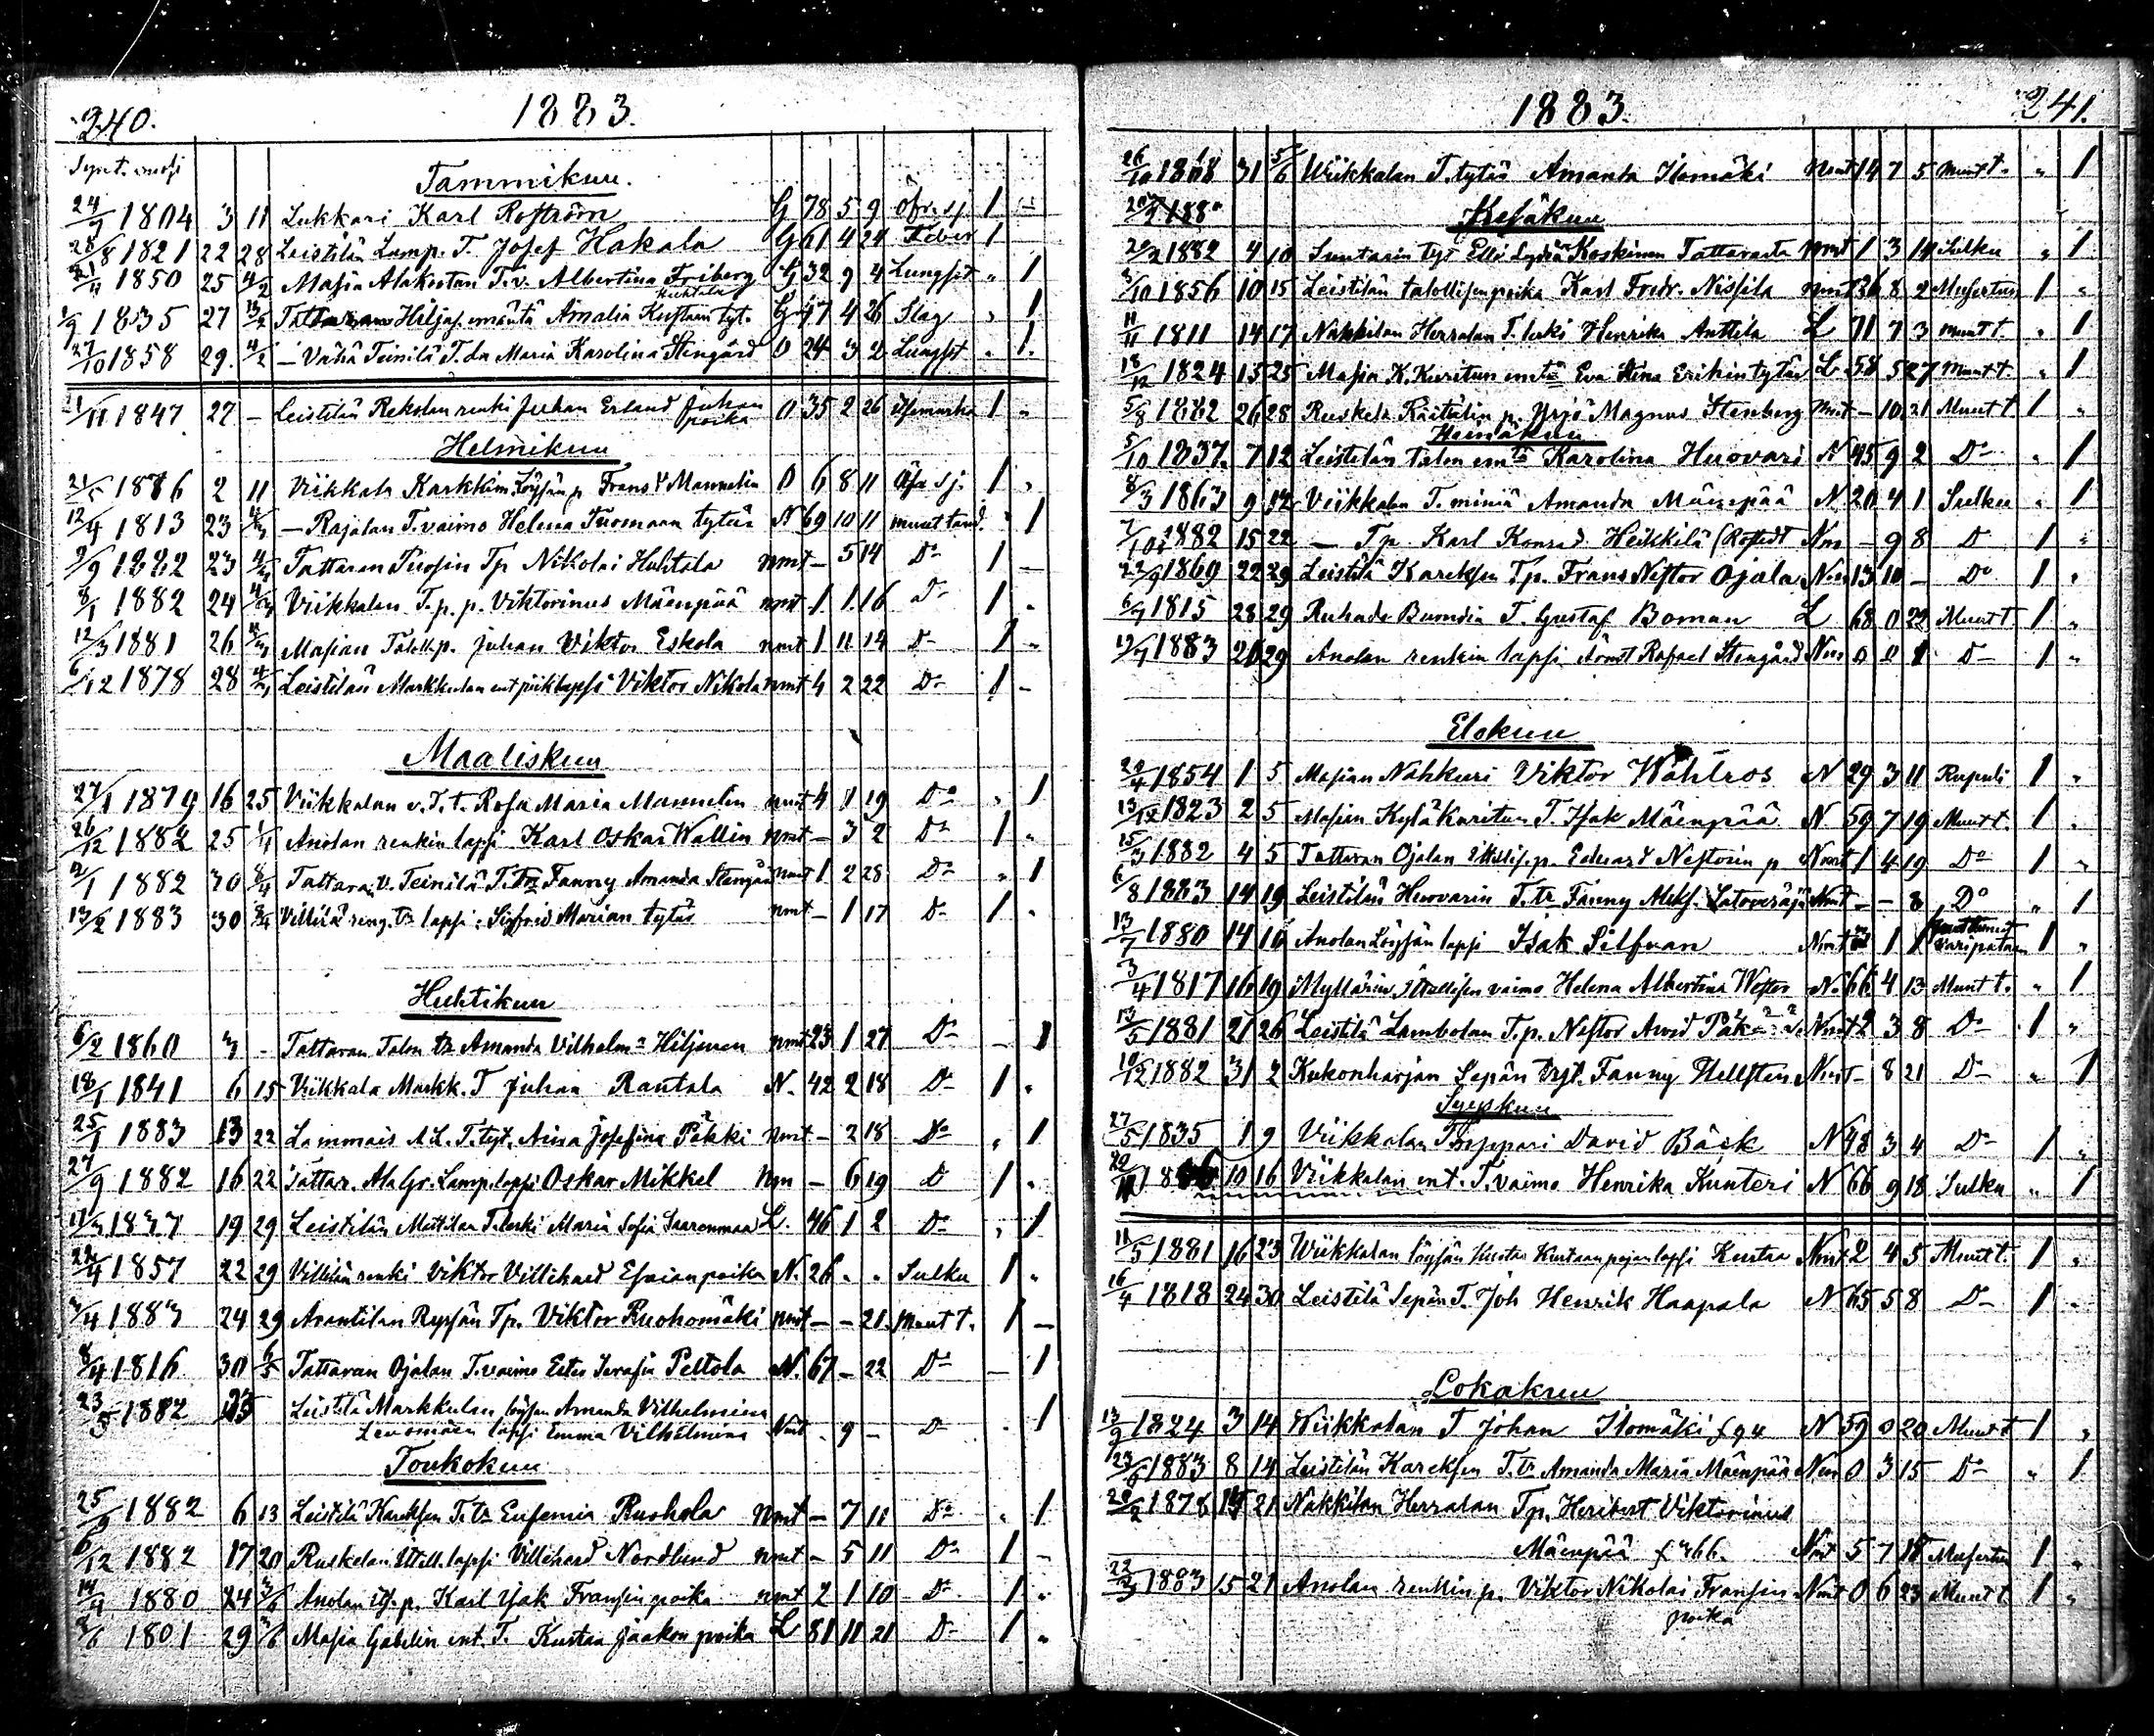 240. 1883.
Synt. vuosi
Tammikuu.
24/9 1804 3 11 Lukkari Karl Roström G 78 5 9 Öfr. sj 1
28/8 1821 22 28 Leistilän Lamp. T. Josef Hakala G 61 4 24 Feber 1
21/4 1850 25 4/2 Masia Alakustan T.v. Albertina Friberg G 32 9 4 Lungsot " 1
Huhtala
1/9 1835 27 Tattaran Hiljas. emäntä Amalia Kustaan tyt. G 47 4 26 Slag " 1
27/10 1858 29. 4/2 — Vähä Teinilä T. Maria Karolina Stengård O 24 3 2 Lungsot " 1.
21/11 1847 27 – Leistilän Rekolan renki Juhan Erland Juhan O 35 2 26 1 "
poika
Helmikuu
21/5 1876 2 11 Viikkala Karkkim. Löysän p. Frans V. Mannelin O 6 8 11 sj. 1 "
12/4 1813 23 4/3 — Rajalan T. vaimo Helena Tuomaan tytär N 69 10 11 muut taud. " 1
9/9 1882 23 4/3 Tattaran Tuosin Tp Nikolai Huhtala nmt – 5 14 Do 1 –
8/1 1882 24 4/3 Viikkalan T. p. p. Viktorinus Mäenpää nmt 1 1 16 Do 1 "
12/3 1881 26 4/3 Masian Taloll.p. Juhan Viktor Eskola nmt 1 11 14 Do 1 "
6/12 1878 28 4/3 Leistilän Markkulan ent piik lapsi Viktor Nikolai nmt 4 2 22 Do 1 –
Maaliskuu
27/1 1879 16 25 Viikkalan v. T. t. Rosa Maria Mannelin nmt 4 1 19 Do " 1
26/12 1882 25 1/4 Anolan renkin lapsi Karl Oskar Wallin nmt – 3 2 Do 1 "
2/1 1882 30 8/4 Tattaran V. Teinilä T. Tr Fanny Amanda Stengård nmt 1 2 28 Do " 1
13/2 1883 30 8/4 Villilä reng. tr lapsi: Sigfrid Marian tytär nmt – 1 17 Do 1 "
Huhtikuu
6/2 1860 3 – Tattaran Talon tr Amanda Vilhelma Hiljanen nmt 23 1 27 Do – 1
18/1 1841 6 15 Viikkala Markk. T Juhan Rantala N. 42 2 18 Do 1 "
25/1 1883 13 22 Lammais A.L. T. tyt. Aina Josefina Päkki nmt – 2 18 Do " 1
27/9 1882 16 22 Tattar. Ala Gr. Lamp. lapsi Oskar Mikkel Nm – 6 19 D 1 "
17/3 1837 19 29 Leistilän Mattilan T. leski Maria Sofia Saarenmaa L. 46 1 2 Do " 1
22/4 1857 22 29 Villilän renki Viktor Villehard Esaian poika N. 26 " " Sulku 1 "
3/4 1883 24 29 Anantilan Rypsän Tp. Viktor Ruohomäki nmt – – 21. muut t. 1 –
8/4 1816 30 6/5 Tattaran Ojalan T. vaimo Ester Serafia Peltola N. 67 – 22 Do – 1
23/5 1882 23 Leistilä Markkulan löysän Amanda Vilhelmina
Leuomäen lapsi Emma Vilhelmina Nmt – 9 – Do " 1
Toukokuu
25/9 1882 6 13 Leistilä Kareksen T. tr Eufemia Ruohola nmt – 7 11 Do " 1
6/12 1882 17 20 Ruskelan lapsi Villehard Nordlund nmt – 5 11 Do 1 –
14/4 1880 24 3/6 Anolan p. Karl Isak Fransin poika nmt 2 1 10 Do 1 "
8/6 1801 29 3/6 Masia Gabelin ent. T. Kustaa Jaakon poika L 81 11 21 Do 1 "
1883. 241.
26/10 1868 31 5/6 Viikkalan T. tytär Amanda Ilomäki Nmt 14 7 5 Muut t. " 1
Kesäkuu
20/2 1882 4 10 Suutarin tyt Elli Lydia Koskinen Tattarasta nmt 1 3 14 Sulku " 1
3/10 1856 10 15 Leistilän talollisen poika Karl Fredr. Nissila nmt 26 8 2 1 "
11/11 1811 14 17 Nakkilan Herralan T. leski Henrika Anttila L 71 7 3 muut t. " 1
18/12 1824 15 25 Masia K. Kuritun emtä Eva Stina Erikin tytär L. 58 5 27 Muut t. " 1
5/8 1882 26 28 Ruskela Räätälin p. Yrjö Magnus Stenberg nmt – 10 21 Muut t 1 "
Heinäkuu
5/10 1837 7 12 Leistilän talon emtä Karolina Huovari N 45 9 2 Do " 1
8/3 1863 9 12 Viikkalan T. miniä Amanda Mäenpää N. 20 4 1 Sulku " 1
7/10 1882 15 22 — T p. Karl Konrad Heikkilä (Rostedt Nm – 9 8 D 1 "
22/9 1869 22 29 Leistilä Kareksen Tp. Frans Nestor Ojala Nm 13 10 – Do 1 "
6/7 1815 28 29 Ruhade T. Gustaf Boman L 68 0 22 Muut t 1 "
19/7 1883 20 29 Anolan renkin lapsi Arvid Rafael Stengård Nm 0 0 1 D 1 "
Elokuu
20/4 1854 1 5 Masian Nahkuri Viktor Wahlros N 29 3 11 Rupuli 1 "
13/12 1823 2 5 Masian Kylä Kuritun T. Isak Mäenpää N. 59 7 19 Muut t. 1 "
15/3 1882 4 5 Tattaran Ojalan p. Eduard Nestorin p Nmt 1 4 19 Do 1 "
6/8 1883 14 19 Leistilän Huovarin T. tr Fanny Aleks. Latoveräjä Nmt – – 8 Do " 1
13/7 1880 14 10 Anolan Löysän lapsi Isak Silfvan Nmt 1 1 1 "
3/4 1817 16 19 Myllärin vaimo Helena Albertina Wester N. 66 4 13 Muut t. " 1
13/5 1881 21 26 Leistilä Lambolan T. p. Nestor Arvid Nmt 2 3 8 Do 1 "
10/12 1882 31 2 Kukonharjan Sepän Fanny Hellsten Nmt – 8 21 D " 1
Syyskuu
27/5 1835 1 9 Viikkalan Torppari David Bäck N 48 3 4 Do 1 "
10 16 Viikkalan ent. T. vaimo Henrika Kunteri N 66 9 18 Sulku " 1
11/5 1881 16 23 Viikkalan löysän Kustaa Kustaan pojan lapsi Kustaa Nmt 2 4 5 Muut t. 1 "
16/4 1818 24 30 Leistilä Sepän T. Joh Henrik Haapala N 65 5 8 D 1 "
Lokakuu
13/9 1824 3 14 Viikkalan T Johan Ilomäki f 94 N 59 0 20 Muut t 1 "
23/6 1883 8 14 Leistilän Kareksen T. tr Amanda Maria Mäenpää Nm 0 3 15 Do " 1
1878 14 21 Nakkilan Herralan Tp. Heribert Viktorinus
Mäenpää f 366. Nmt 5 7 18 1 "
22/3 1883 15 21 Anolan renkin p. Viktor Nikolai Fransin Nmt 0 6 23 Muut t. 1 "
poika